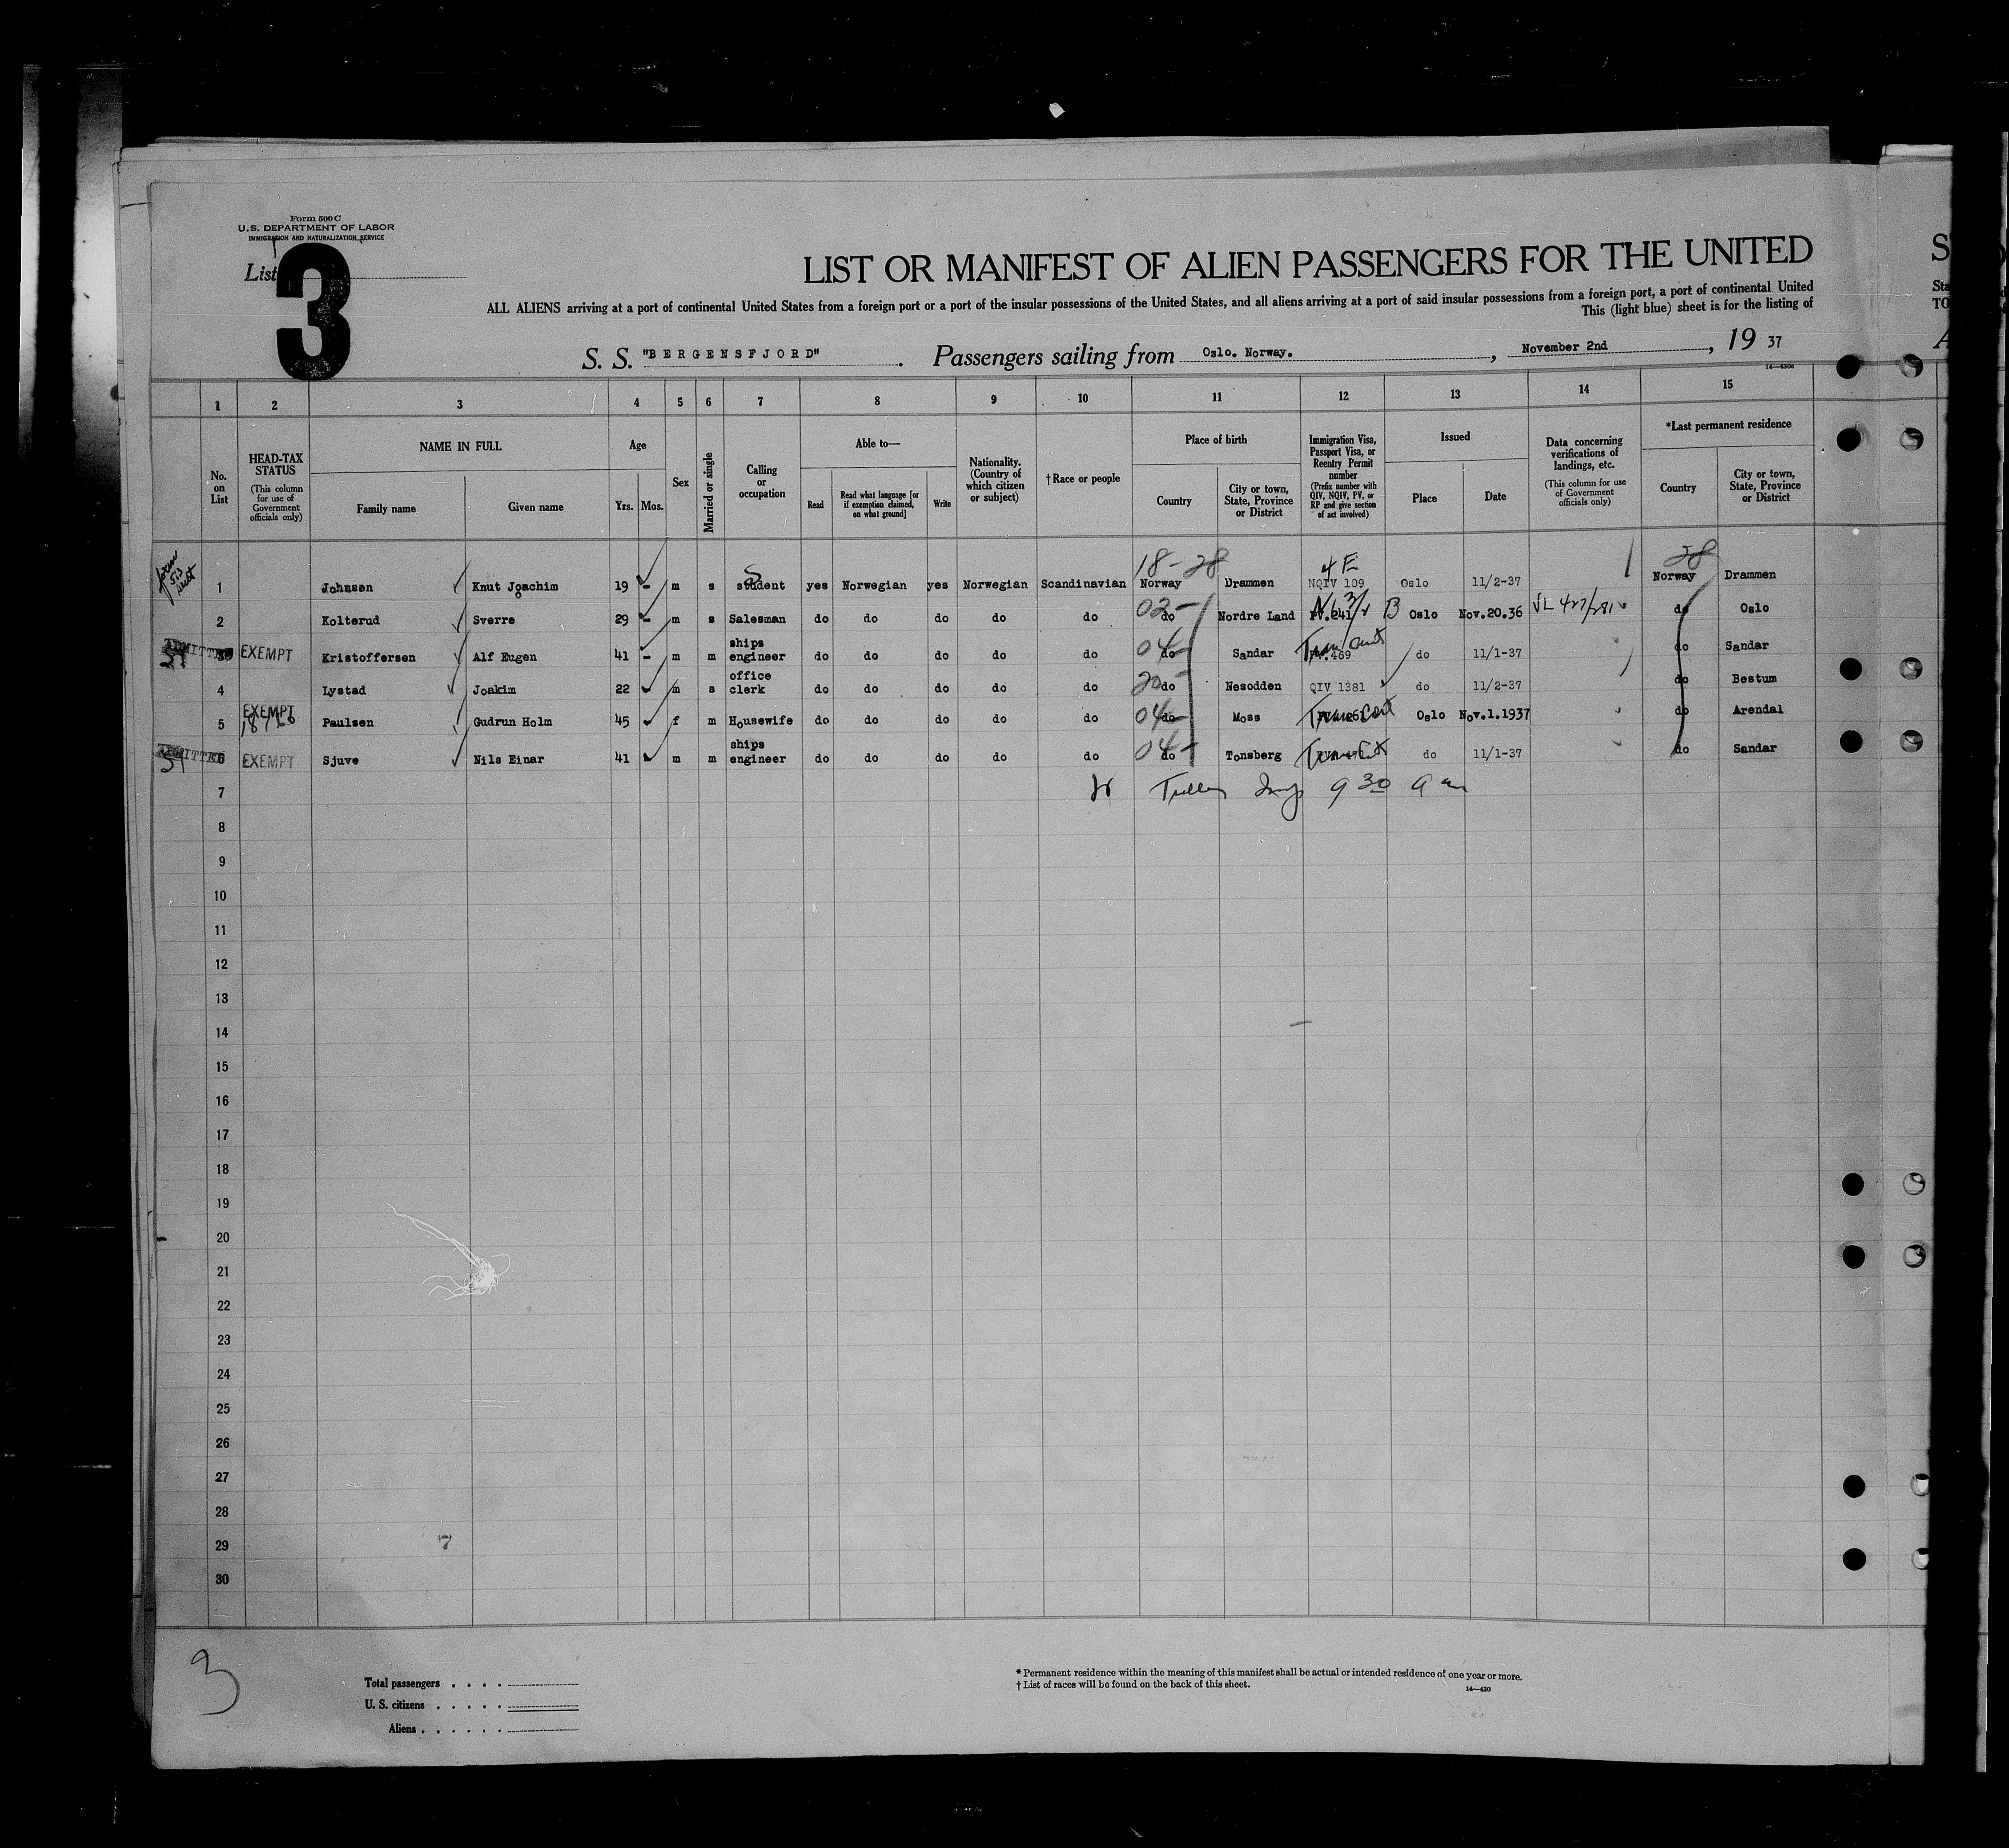 Form 500 C
U.S. DEPARTMENT OF LABOR
IMMIGRATION AND NATURALIZATION SERVICE
List 3
LIST OR MANIFEST OF ALIEN PASSENGERS FOR THE UNITED
ALL ALIENS arriving at a port of continental United States from a foreign port or a port of the insular possessions of the United States, and all aliens arriving at a port of said insular possessions from a foreign port, a port of continental United
This (light blue) sheet is for the listing of
S. S. "BERGENSFJORD". Passengers sailing from Oslo. Norway., November 2nd, 19 37
14—430
1 2 3 4 5 6 7 8 9 10 11 12 13 14 15
No. on List
HEAD-TAX STATUS (This column for use of Government officials only)
NAME IN FULL
Family name Given name
Age
Yrs. Mos.
Sex
Married or single
Calling or occupation
Able to—
Read Read what language [or if exemption claimed, on what ground] Write
Nationality. (Country of which citizen or subject)
†Race or people
Place of birth
Country City or town, State, Province or District
Immigration Visa, Passport Visa, or Reentry Permit number (Prefix number with QIV, NQIV, PV, or RP and give section of act involved)
Issued
Place Date
Data concerning verifications of landings, etc. (This column for use of Government officials only)
*Last permanent residence
Country City or town, State, Province or District
18-28 4 E 28
1 Johnsen Knut Joachim 19 - m s student yes Norwegian yes Norwegian Scandinavian Norway Drammen NQIV 109 Oslo 11/2-37 Norway Drammen
2 Kolterud Sverre 29 - m s Salesman do do do do do 02- do Nordre Land B Oslo Nov.20.36 VL 427/281 do Oslo
ADMITTED EXEMPT Kristoffersen Alf Eugen 41 - m m ships engineer do do do do do 04- do Sandar 469 do 11/1-37 do Sandar
4 Lystad Joakim 22 m s office clerk do do do do do 20- do Nesodden QIV 1381 do 11/2-37 do Bestum
5 EXEMPT Paulsen Gudrun Holm 45 f m Housewife do do do do do 04- do Moss Oslo Nov.1.1937 do Arendal
ADMITTED 6 EXEMPT Sjuve Nils Einar 41 m m ships engineer do do do do do 04- do Tonsberg do 11/1-37 do Sandar
7 9 30 a m
8
9
10
11
12
13
14
15
16
17
18
19
20
21
22
23
24
25
26
27
28
29 7
30
3
Total passengers
U. S. citizens
Aliens
* Permanent residence within the meaning of this manifest shall be actual or intended residence of one year or more.
† List of races will be found on the back of this sheet.
14—430